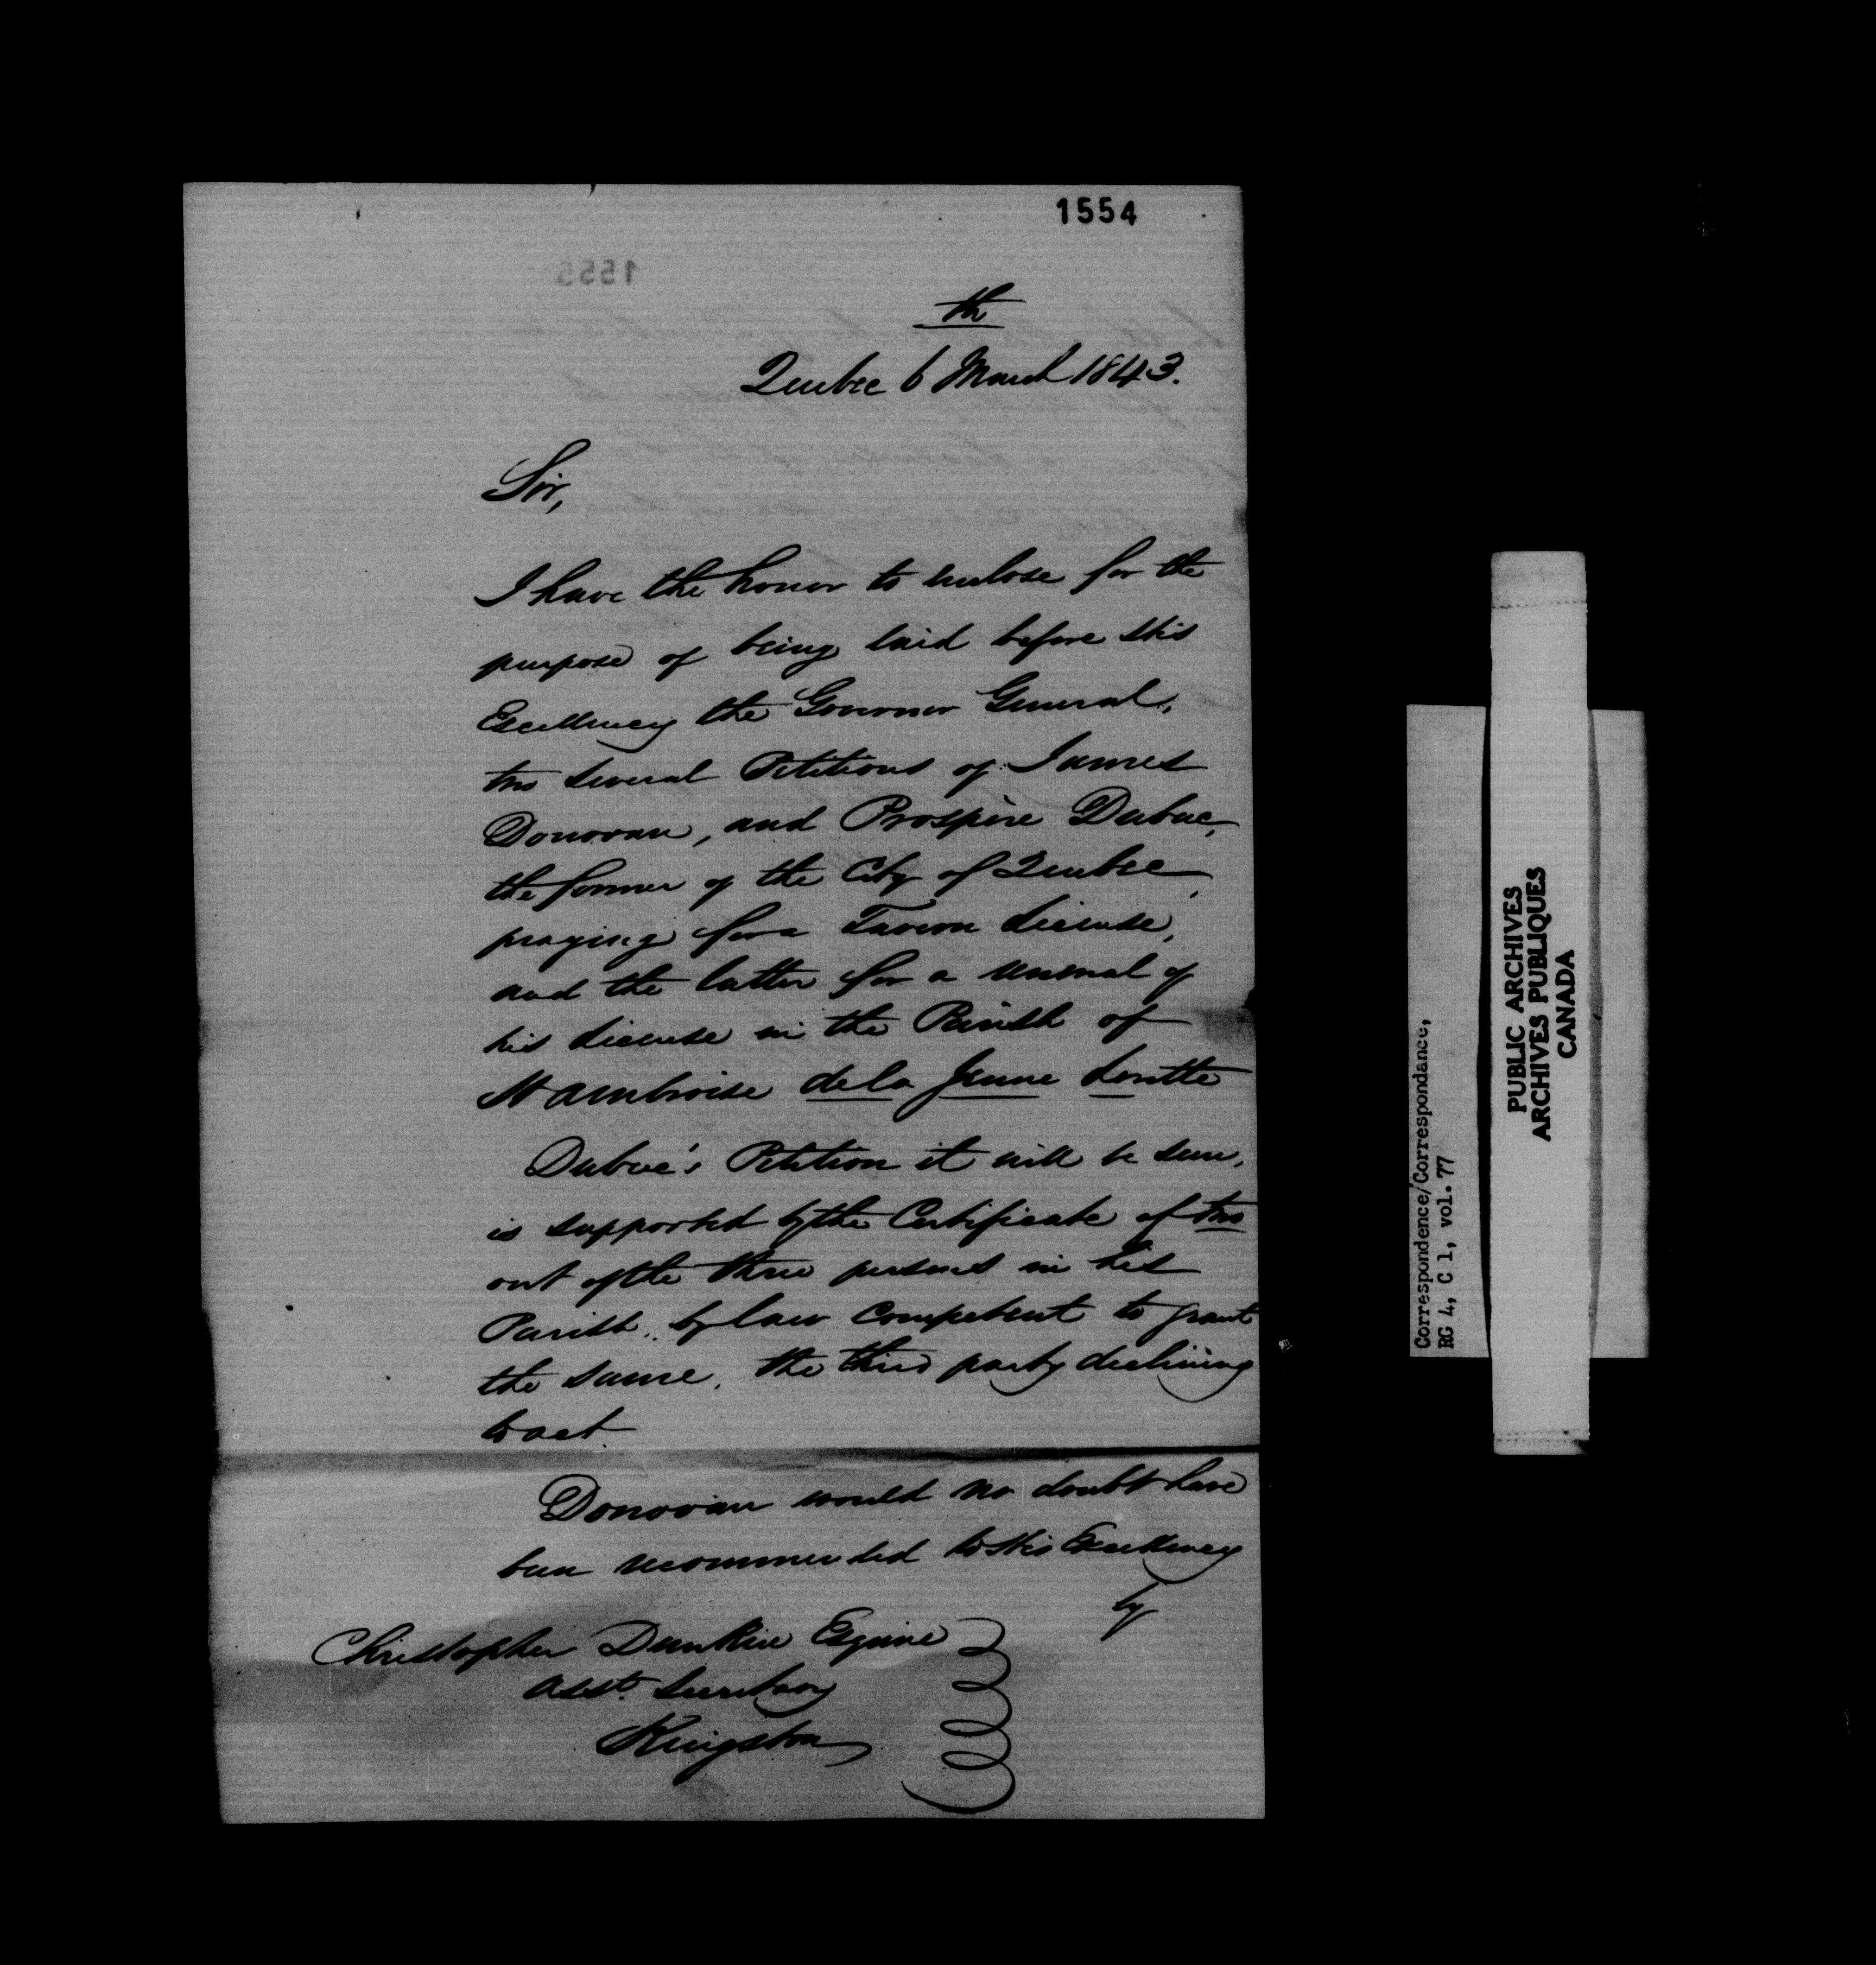 1554
1555
th
Quebec 6 March 1843.
Sir,
I have the honor to enclose for the
purpose of being laid before His
Excellency the Governor General,
two several Petitions of James
Donovan, and Prospère Dubuc,
the former of the City of Quebec,
praying for a Tavern License,
and the latter for a renewal of
his License in the Parish of
St Ambroise de la Jeune Lorette
Dubuc's Petition it will be seen,
is supported by the Certificate of two
out of the three persons in his
Parish, by law Competent to grant
the same, the third party declining
to act.
Donovan would no doubt have
been recommended to His Excellency
by
Christopher Dunkin Esquire
Asst. Secretary
Kingston
Correspondence/Correspondance,
RG 4, C 1, vol. 77
PUBLIC ARCHIVES
ARCHIVES PUBLIQUES
CANADA